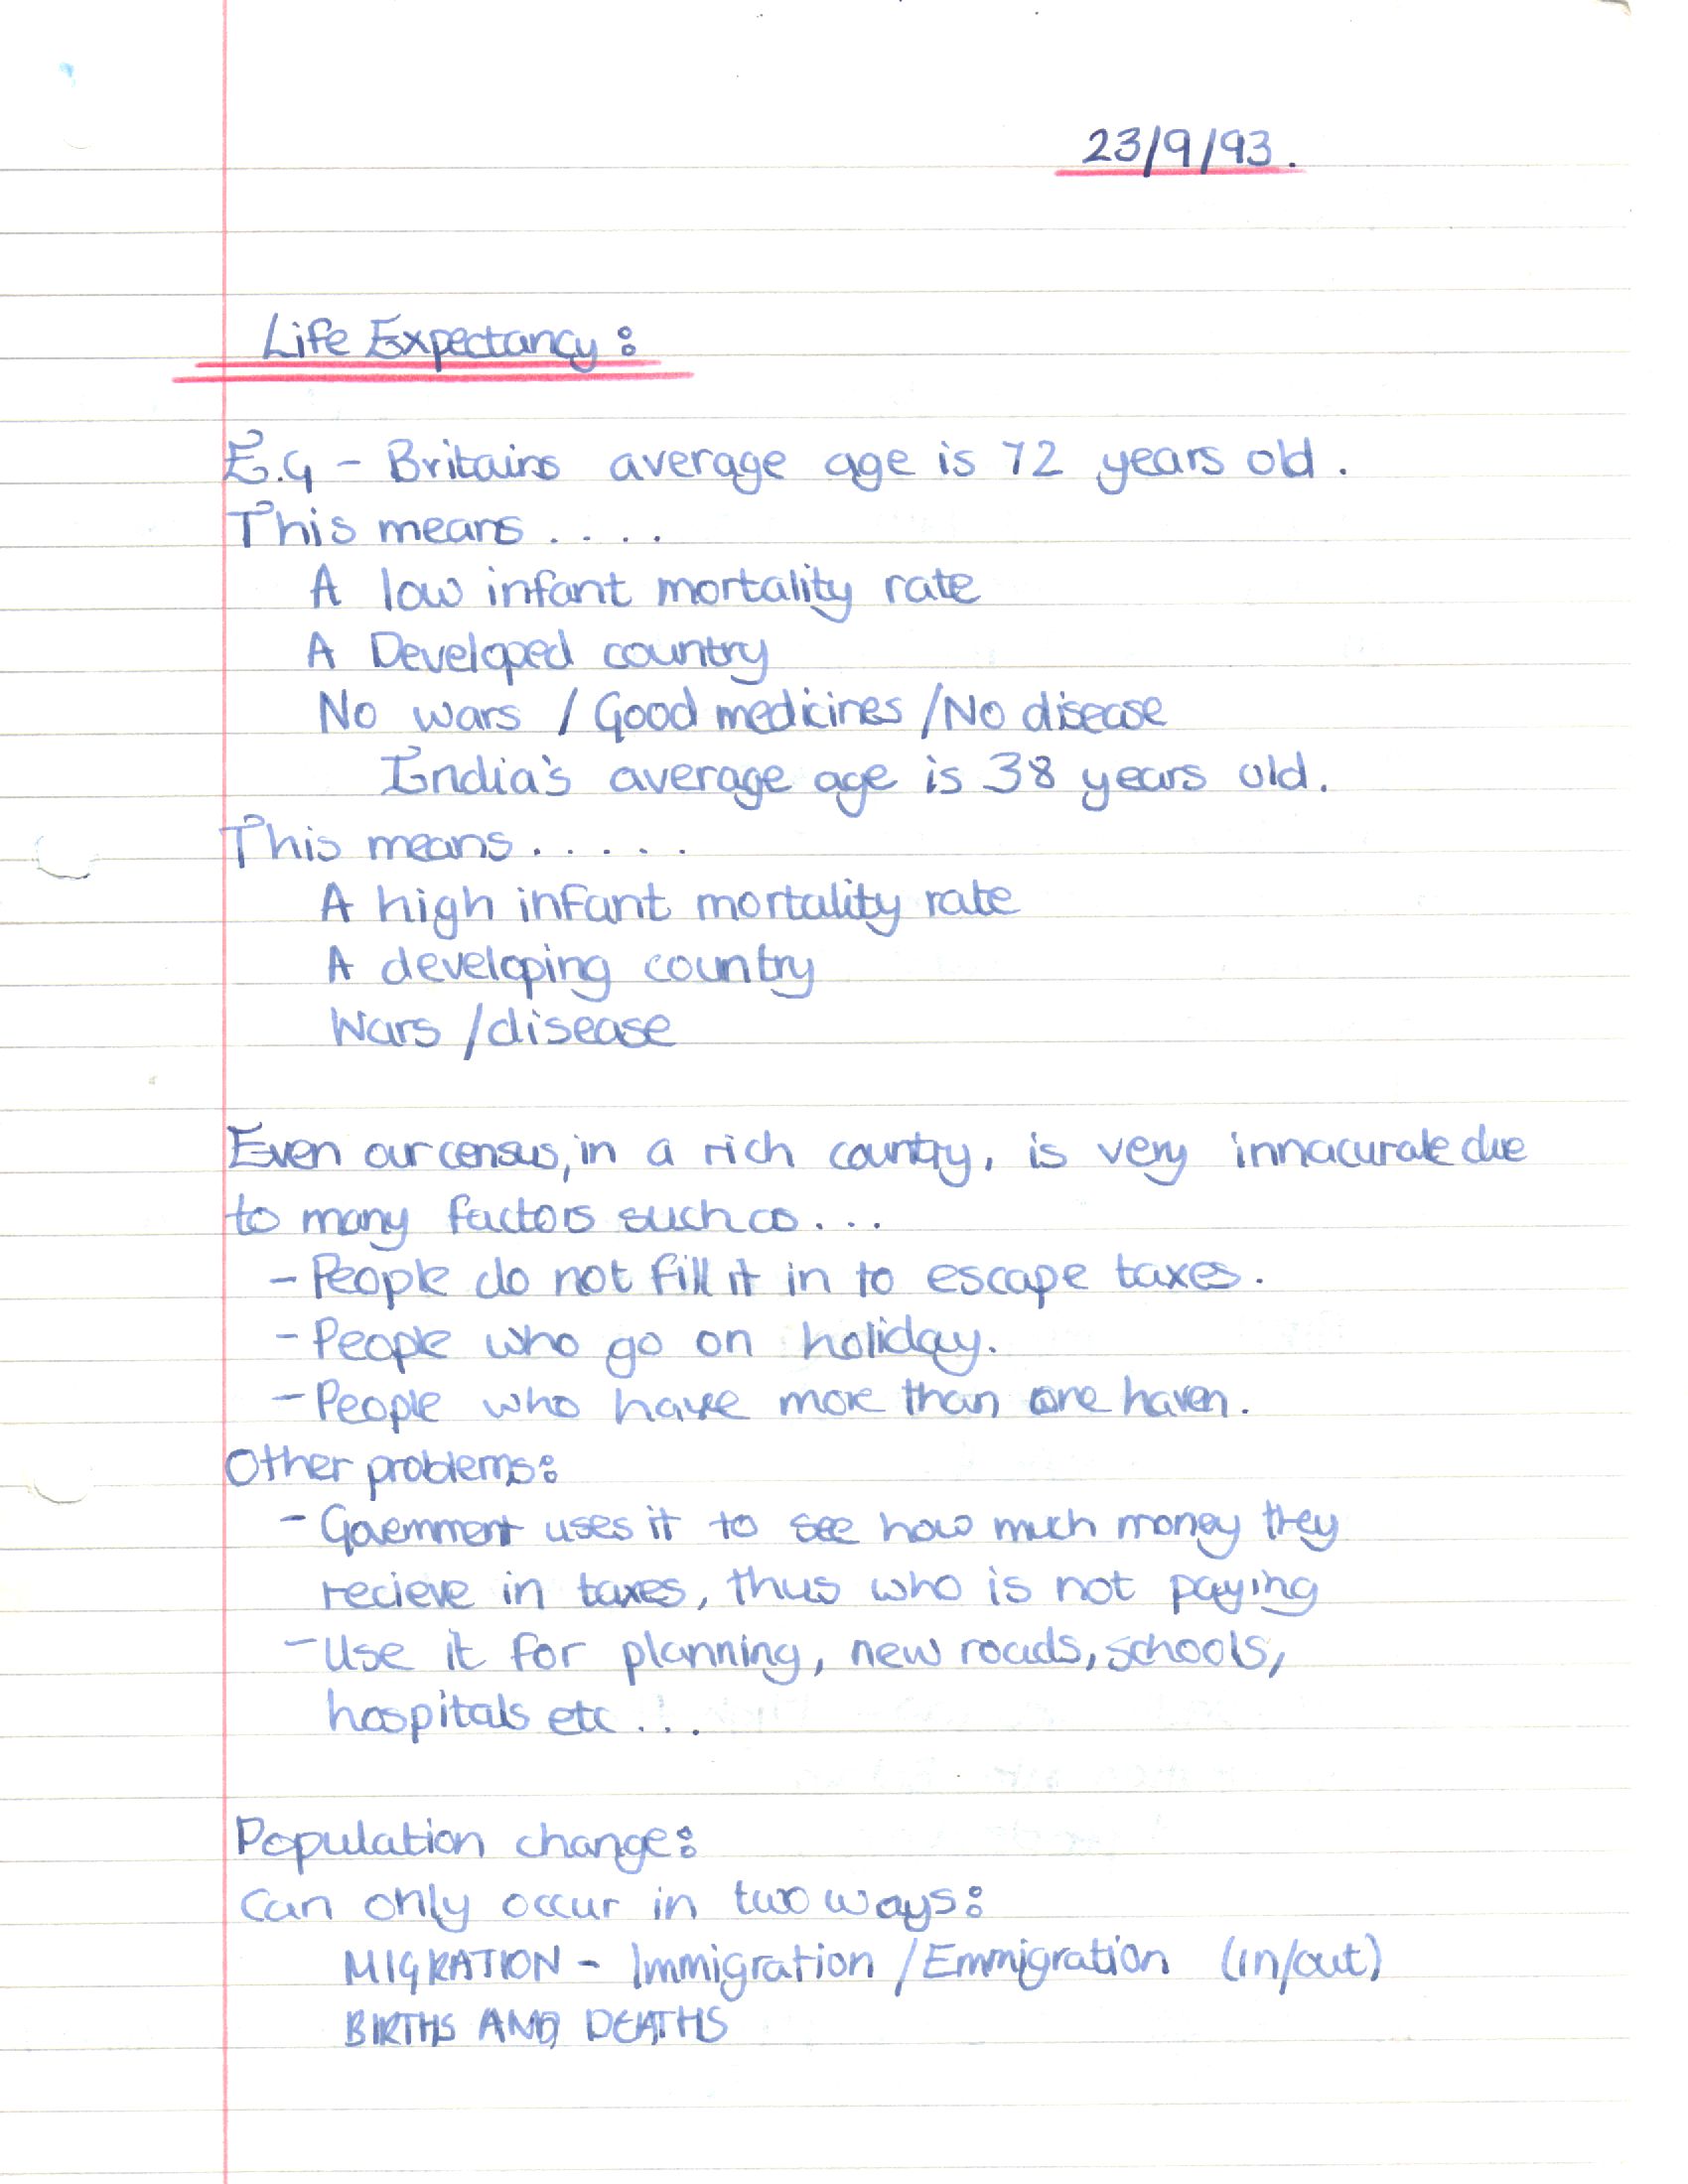 23/9/93.
Life Expectancy:
E.G - Britains average age is 72 years old.
This means ....
A low infant mortality rate
A Developed country
No wars / Good medicines / No disease
India's average age is 38 years old.
This means .....
A high infant mortality rate
A developing country
Wars / disease
Even our census, in a rich country, is very innacurate due
to many factors such as ...
- People do not fill it in to escape taxes.
- People who go on holiday.
- People who have more than one haven.
Other problems:
- Government uses it to see how much money they
recieve in taxes, thus who is not paying
- Use it for planning, new roads, schools,
hospitals etc ...
Population change:
Can only occur in two ways:
MIGRATION - Immigration / Emmigration (in/out)
BIRTHS AND DEATHS